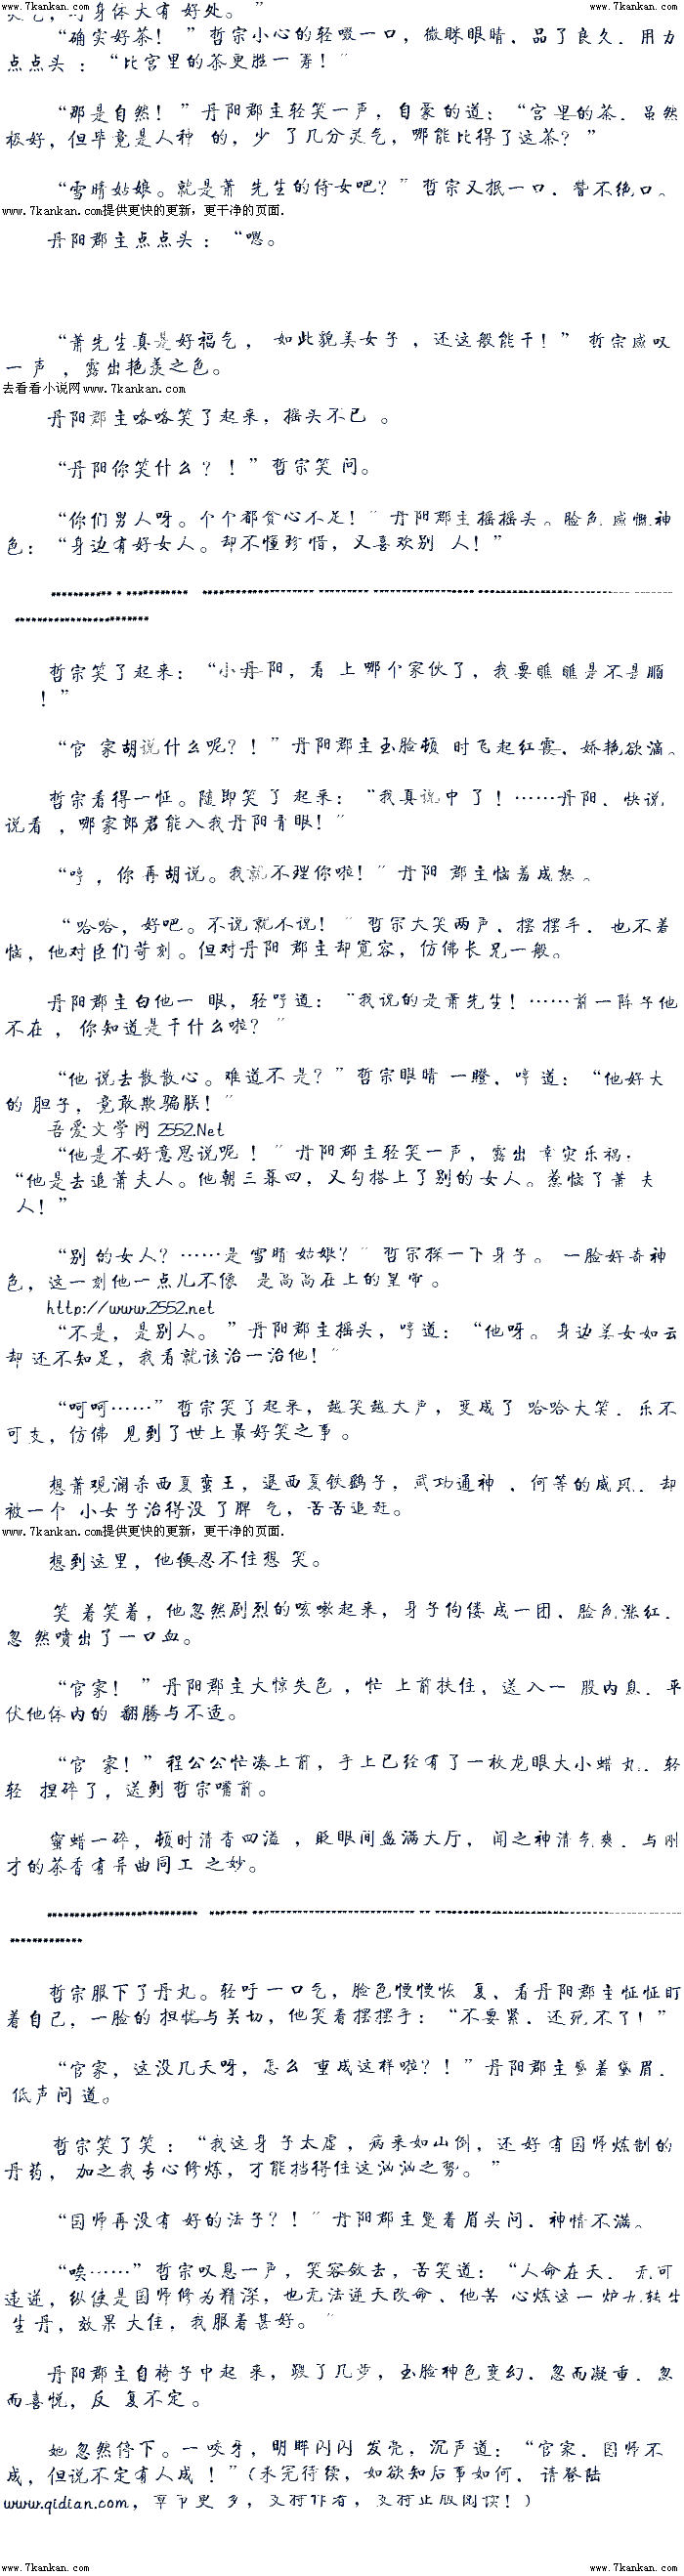 www.7kankan.com www.7kankan.com
灵气，对身体大有 好处。”
“确实好茶！ ”哲宗小心的轻啜一口，微眯眼睛，品了良久，用力
点点头 ：“比宫里的茶更胜一筹！”
“那是自然！ ”丹阳郡主轻笑一声，自豪的道：“宫里的茶，虽然
极好，但毕竟是人种 的，少 了几分灵气，哪能比得了这茶？”
“雪晴姑娘。就是萧 先生的侍女吧？”哲宗又抿一口，赞不绝口。
www.7kankan.com提供更快的更新，更干净的页面.
丹阳郡主点点头 ：“嗯。
“萧先生真是好福气 ， 如此貌美女子 ，还这般能干！” 哲宗感叹
一声 ，露出艳羡之色。
去看看小说网www.7kankan.com
丹阳郡主咯咯笑了起来，摇头不已 。
“丹阳你笑什么？！”哲宗笑 问。
“你们男人呀。个个都贪心不足！”丹阳郡主摇摇头。脸色 感慨神
色：“身边有好女人。却不懂珍 惜，又喜欢别 人！”
哲宗笑了起来：“小丹阳，看 上哪个家伙了，我要瞧 瞧是不是顺
！”
“官 家胡说什么呢？！”丹阳郡主玉脸顿 时飞起红霞，娇艳欲滴。
哲宗看得一怔。随即笑 了 起来：“我真说中 了！……丹阳，快说
说看 ，哪家郎君能入我丹阳青眼！”
“哼 ，你再胡说。我就不理你啦！”丹阳 郡主恼羞成怒 。
“哈哈，好吧。不说就不说！ ”哲宗大笑两声，摆 摆手，也不着
恼，他对臣们苛刻。但对丹阳 郡主却宽容，仿佛长 兄一般。
丹阳郡主白他一 眼，轻哼道：“我说的是萧先生！……前一阵子他
不在 ，你知道是干什么啦？”
“他 说去散散心。难道不 是？”哲宗眼睛 一瞪，哼 道：“他好大
的 胆子，竟敢欺骗朕！”
吾爱文学网 2552.Net
“他是不好意思说呢 ！”丹阳郡主轻笑一声，露出 幸灾乐祸：
“他是去追萧夫人。他朝三暮四，又勾搭上了别的女人。惹恼了萧 夫
人！”
“别 的女人？……是 雪晴 姑娘？”哲宗探一下身子。 一脸好奇神
色，这一刻他一点儿不像 是高高在上的皇帝 。
http://www.2552.net
“不是，是别人。 ”丹阳郡主摇头，哼道：“他呀。身边美女如云
却 还不知足，我看就该治一治他！”
“呵呵……”哲宗笑了起来，越笑越大声，变成了 哈哈大笑，乐不
可支，仿佛 见到了世上最好笑之事 。
想萧观澜杀西夏蛮王，退西夏铁鹞子，武功通神 ，何等的威风，却
被一个 小女子治得没 了脾 气，苦苦追赶。
www.7kankan.com提供更快的更新，更干净的页面.
想到这里，他便忍不住想 笑。
笑 着笑着，他忽然剧烈的咳嗽起来，身子佝偻 成一团，脸色涨红，
忽 然喷出了一口血。
“官家！ ”丹阳郡主大惊失色 ，忙 上前扶住，送入一 股内息，平
伏他体内的 翻腾与不适。
“官 家！”程公公忙凑上前，手上已经有了一枚龙眼大小蜡 丸，轻
轻 捏碎了，送到 哲宗嘴前。
蜜蜡一碎，顿时清香四溢 ，眨眼间盈满大厅， 闻之神清气爽，与刚
才的茶香有异曲同工 之妙。
哲宗服下了丹丸。轻吁一口气，脸色慢慢恢 复，看丹阳郡主怔怔盯
着自己，一脸的 担忧与关切，他笑着摆摆手：“不要紧，还死不了！”
“官家，这没几天呀，怎么 重成这样啦？！”丹阳郡主蹙着黛眉，
低声问 道。
哲宗笑了笑 ：“我这身 子太虚 ，病来如山倒，还好 有国师炼制的
丹药， 加之我专心修炼，才能挡得住这汹汹之势。”
“国师再没有 好的法子？！”丹阳郡主蹙着眉头问，神情不满。
“唉……”哲宗叹息一声，笑容敛去，苦笑道：“人命在天， 无可
违逆，纵使是国师修为精深，也无法逆天改命，他苦 心炼这一炉九转生
生丹，效果 大佳，我服着甚好。”
丹阳郡主自椅子中起 来，踱了几步，玉脸神色变幻，忽而凝重，忽
而喜悦，反 复不定 。
她 忽然停下。一咬牙，明眸闪闪 发亮，沉声道：“官家，国师不
成，但说不定有人成 ！”（未完待续，如欲知后事如何，请登陆
www.qidian.com，章节更 多，支持作者，支持正版阅读！）
www.7kankan.com www.7kankan.com